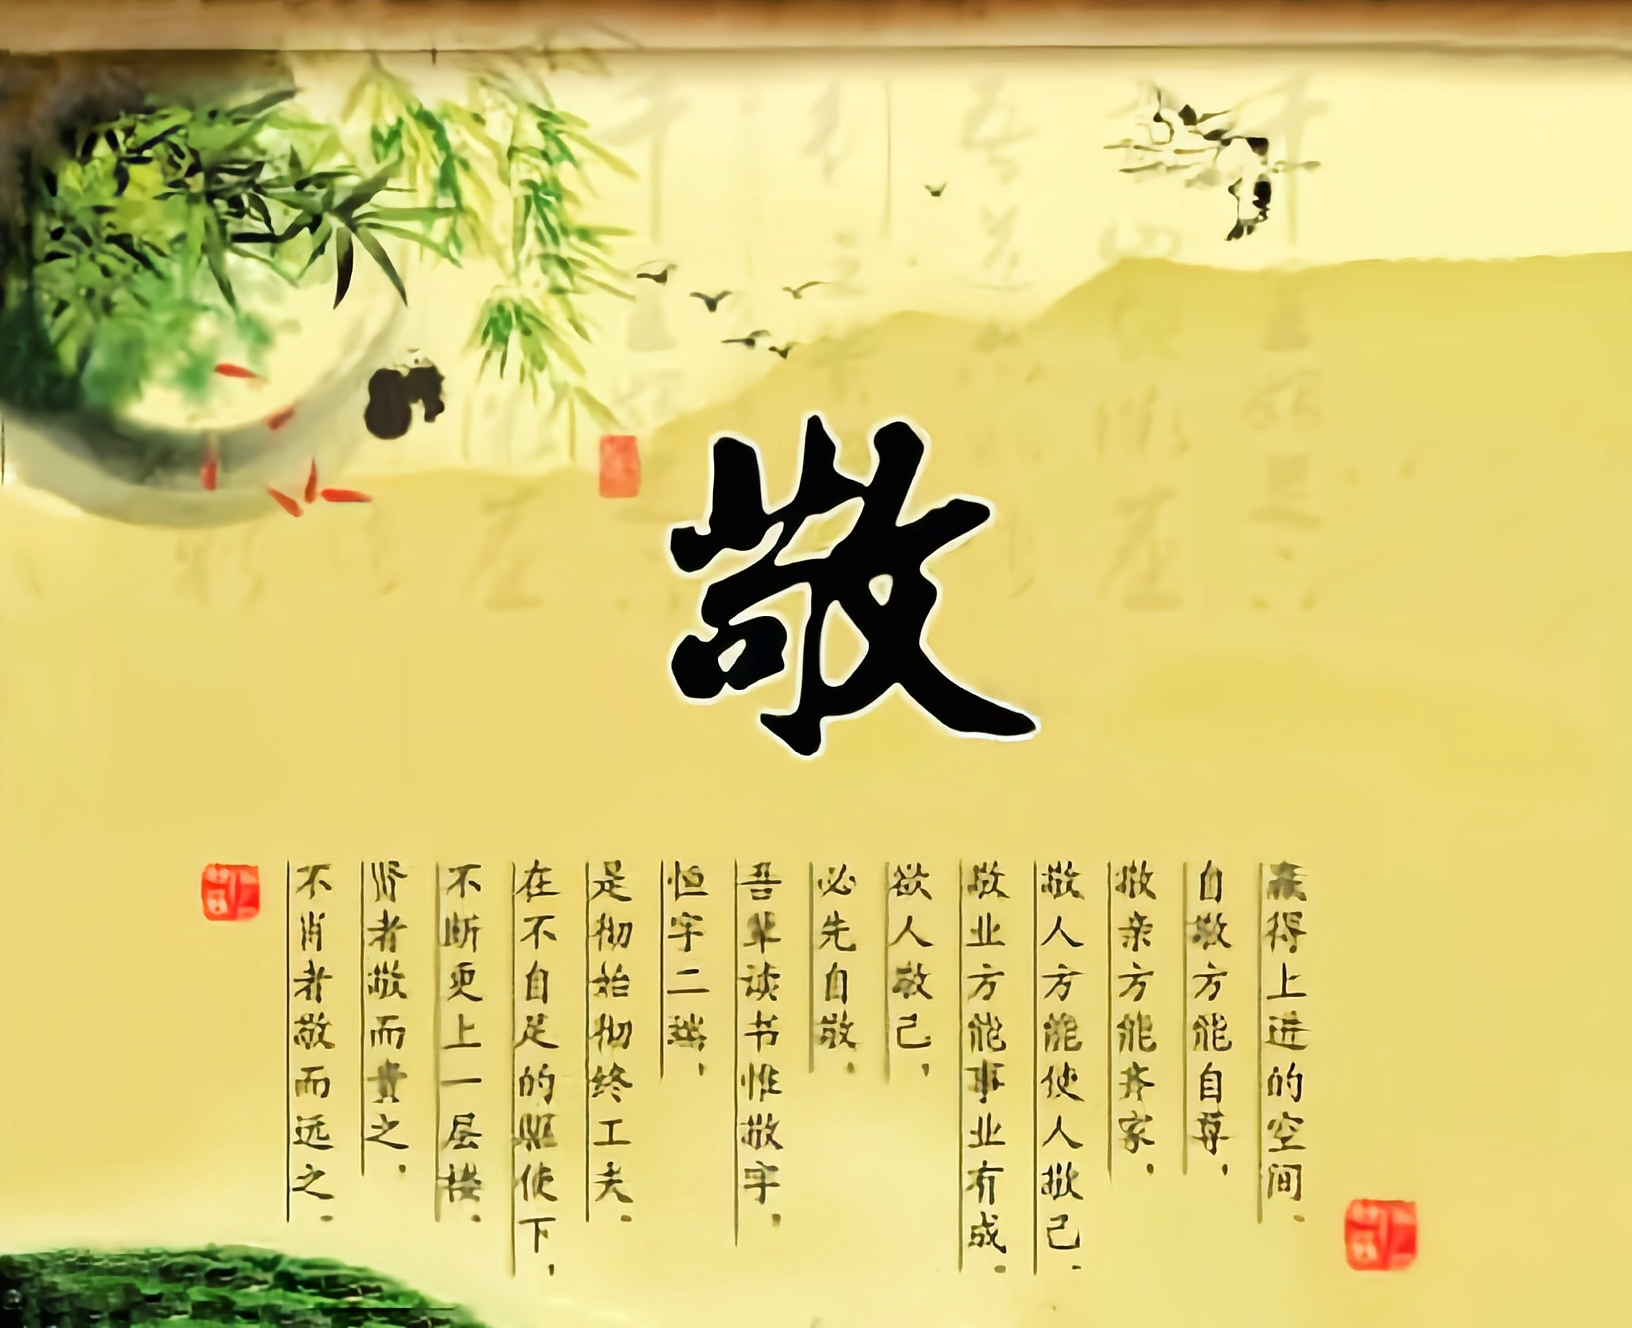 敬
赢得上进的空间。
自敬方能自尊，
敬亲方能齐家，
敬人方能使人敬己。
敬业方能事业有成。
欲人敬己，
必先自敬。
吾辈读书惟敬字，
恒字二端，
是彻始彻终工夫。
在不自足的驱使下，
不断更上一层楼。
贤者敬而贵之，
不肖者敬而远之。